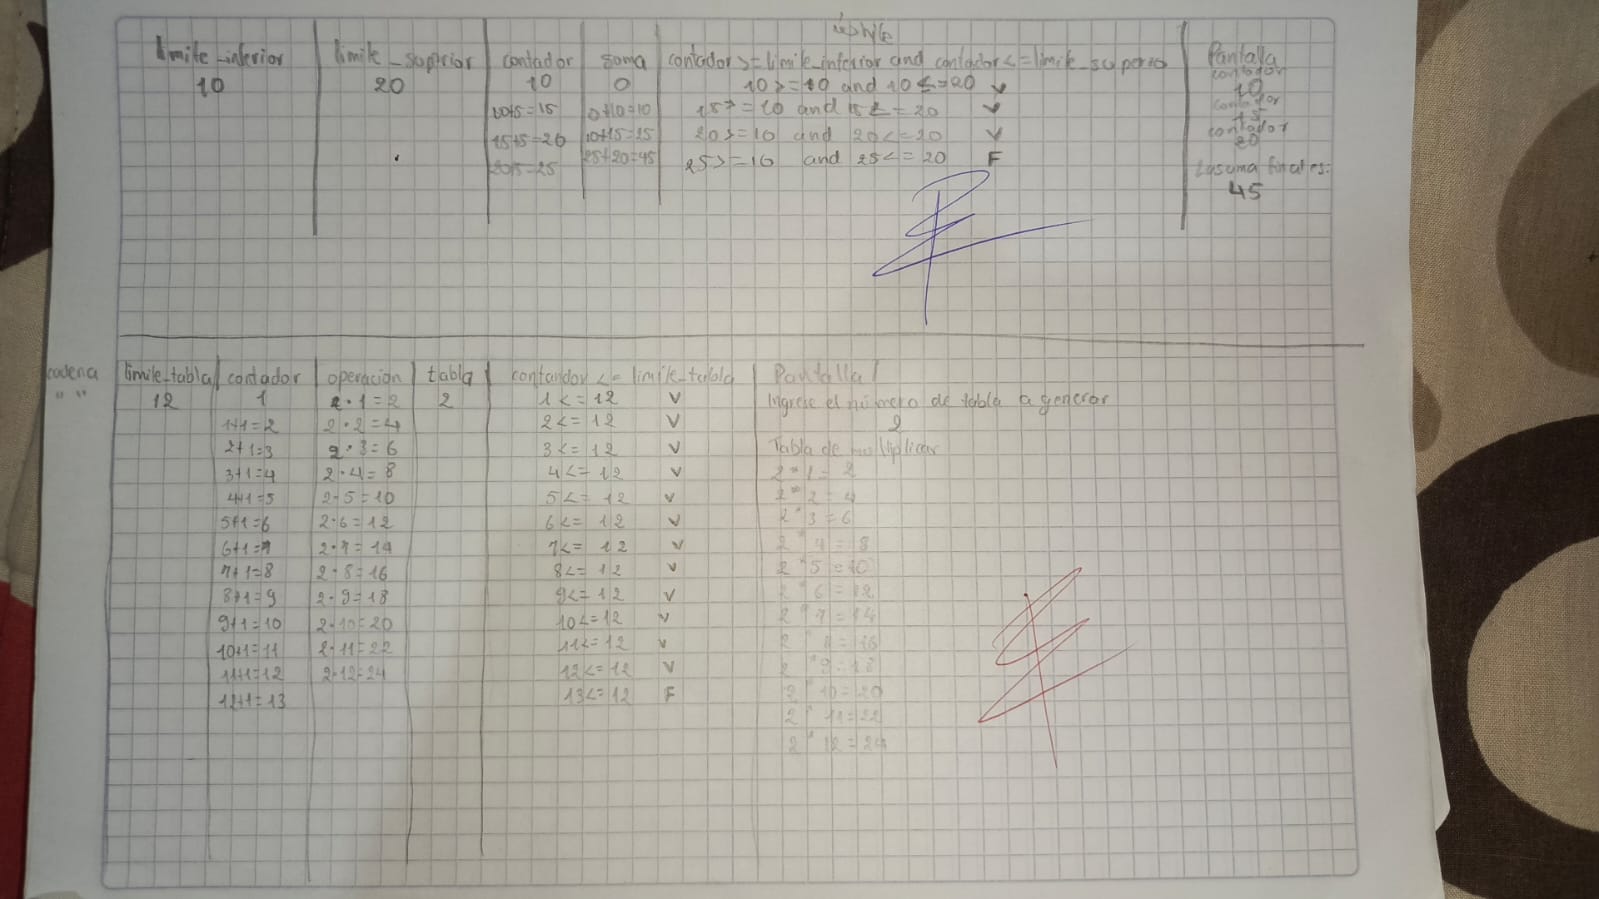 while
limite_inferior limite_superior contador suma contador >= limite_inferior and contador <= limite_superio Pantalla
contador
10 20 10 0 10 >= 10 and 10 <= 20 v 10
10+5=15 0+10=10 15 >= 10 and 15 <= 20 v contador
15
15+5=20 10+15=25 20 >= 10 and 20 <= 20 v contador
20
20+5=25 25+20=45 25 >= 10 and 25 <= 20 F
La suma final es:
45
cadena limite_tabla contador operacion tabla contandor <= limite_tabla Pantalla
" " 12 1 2*1=2 2 1 <= 12 v Ingrese el número de tabla a generar
1+1=2 2*2=4 2 <= 12 v 2
2+1=3 2*3=6 3 <= 12 v Tabla de multiplicar
3+1=4 2*4=8 4 <= 12 v 2 * 1 = 2
4+1=5 2*5=10 5 <= 12 v 2 * 2 = 4
5+1=6 2*6=12 6 <= 12 v 2 * 3 = 6
6+1=7 2*7=14 7 <= 12 v 2 * 4 = 8
7+1=8 2*8=16 8 <= 12 v 2 * 5 = 10
8+1=9 2*9=18 9 <= 12 v 2 * 6 = 12
9+1=10 2*10=20 10 <= 12 v 2 * 7 = 14
10+1=11 2*11=22 11 <= 12 v 2 * 8 = 16
11+1=12 2*12=24 12 <= 12 v 2 * 9 = 18
12+1=13 13 <= 12 F 2 * 10 = 20
2 * 11 = 22
2 * 12 = 24